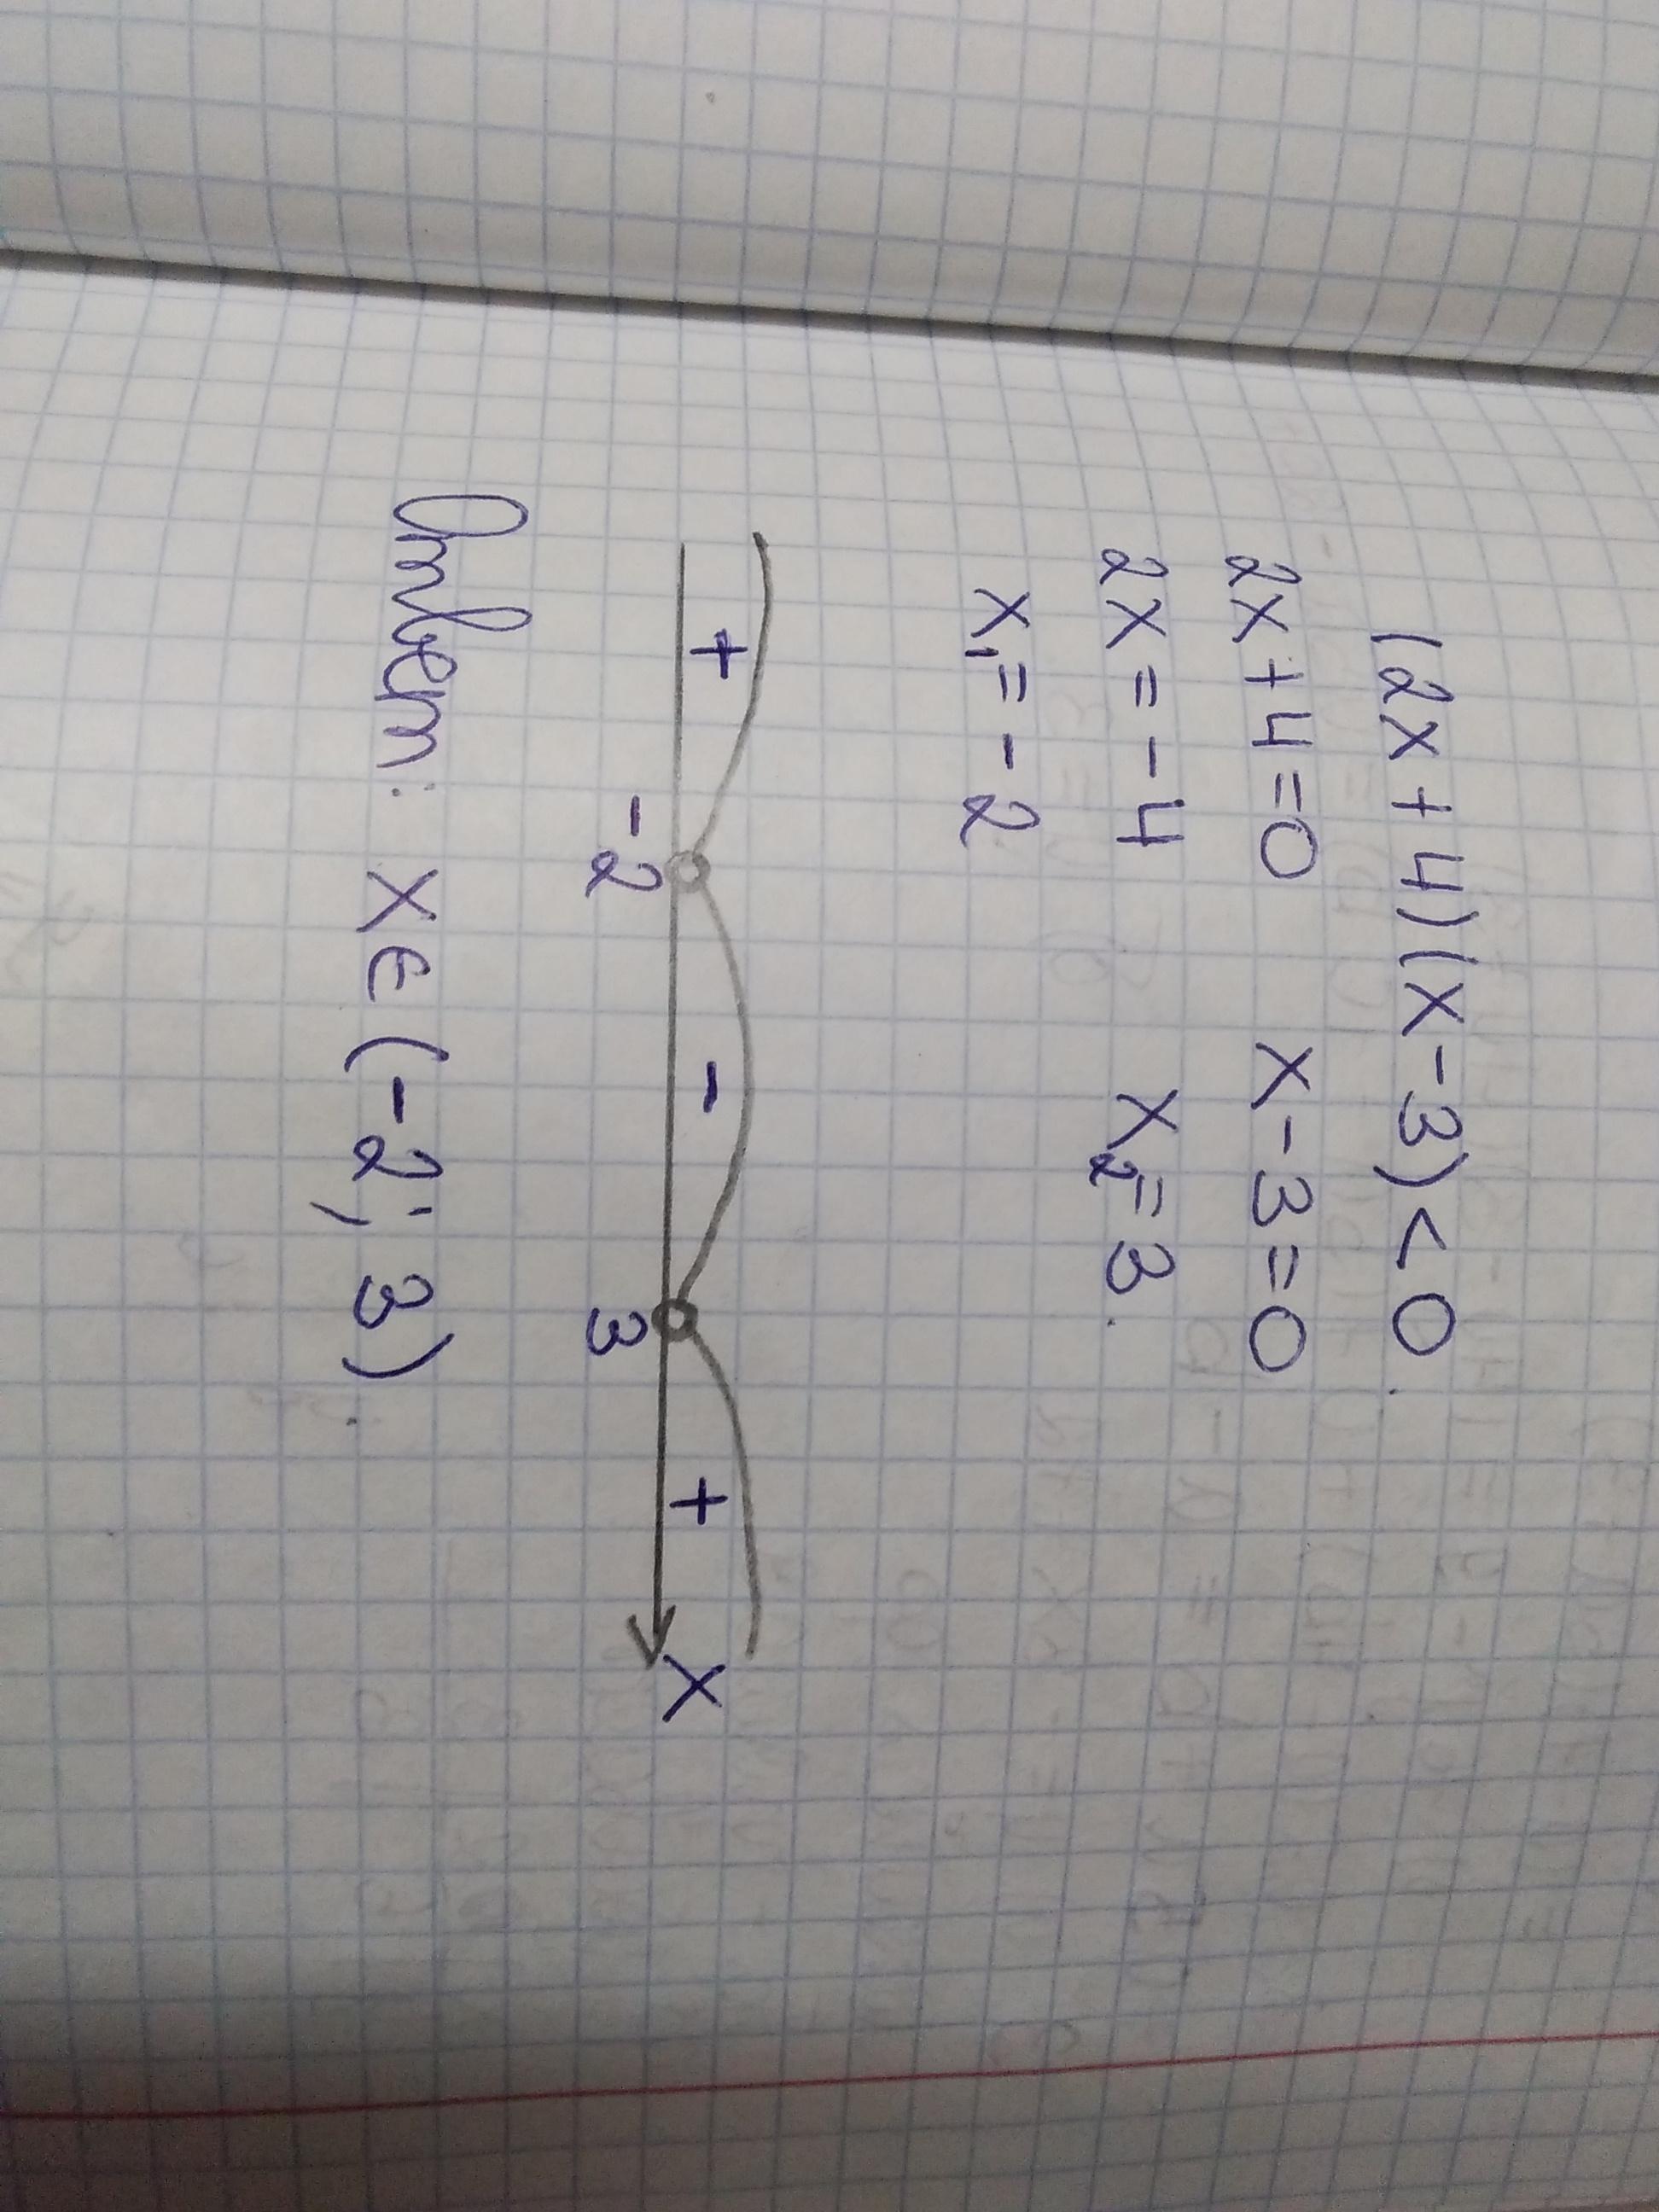 (2x+4)(x-3)<0.
2x+4=0 x-3=0
2x=-4 x₂=3.
x₁=-2
+ - + x
-2 3
Ответ: x∈(-2; 3).